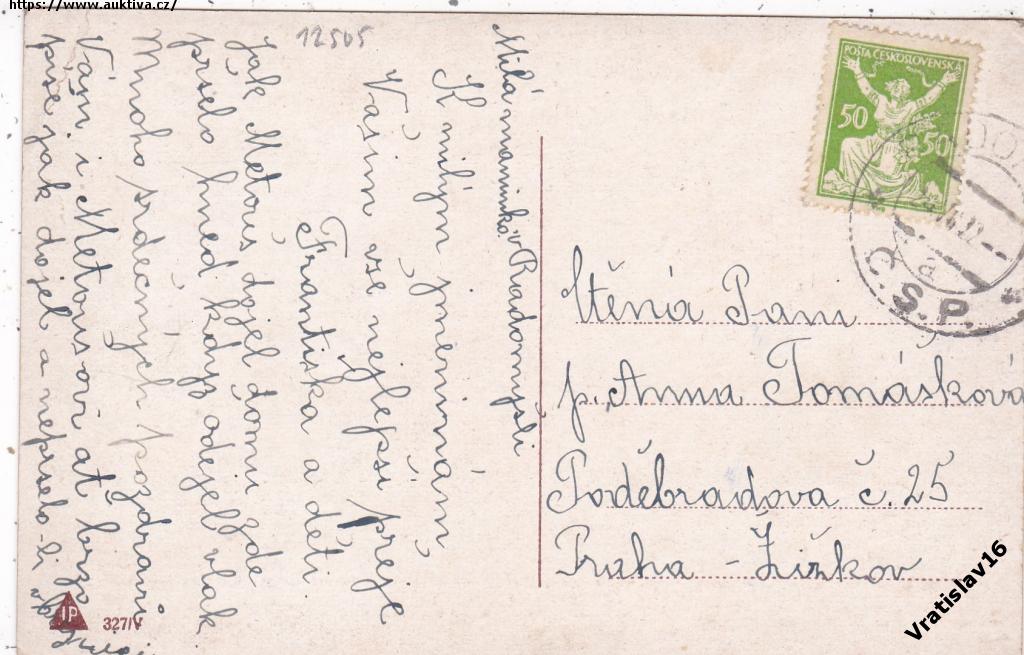 https://www.auktiva.cz/
12505
Milá maminko v Radomyšli
K milým jmeninám
Vašim vše nejlepší přeje
Františka a děti
Jak Metouš dojel domů zde
pršelo hned když odejel vlak
Mnoho srdečných pozdravů
Vám i Metoušovi ať brzo
píše jak dojel a nepršelo-li
POŠTA ČESKOSLOVENSKÁ
50 50
a
Č.S.P.
Ctěná Paní
p. Anna Tomášková
Poděbradova č. 25
Praha - Žižkov
IP
327/V
Vratislav16